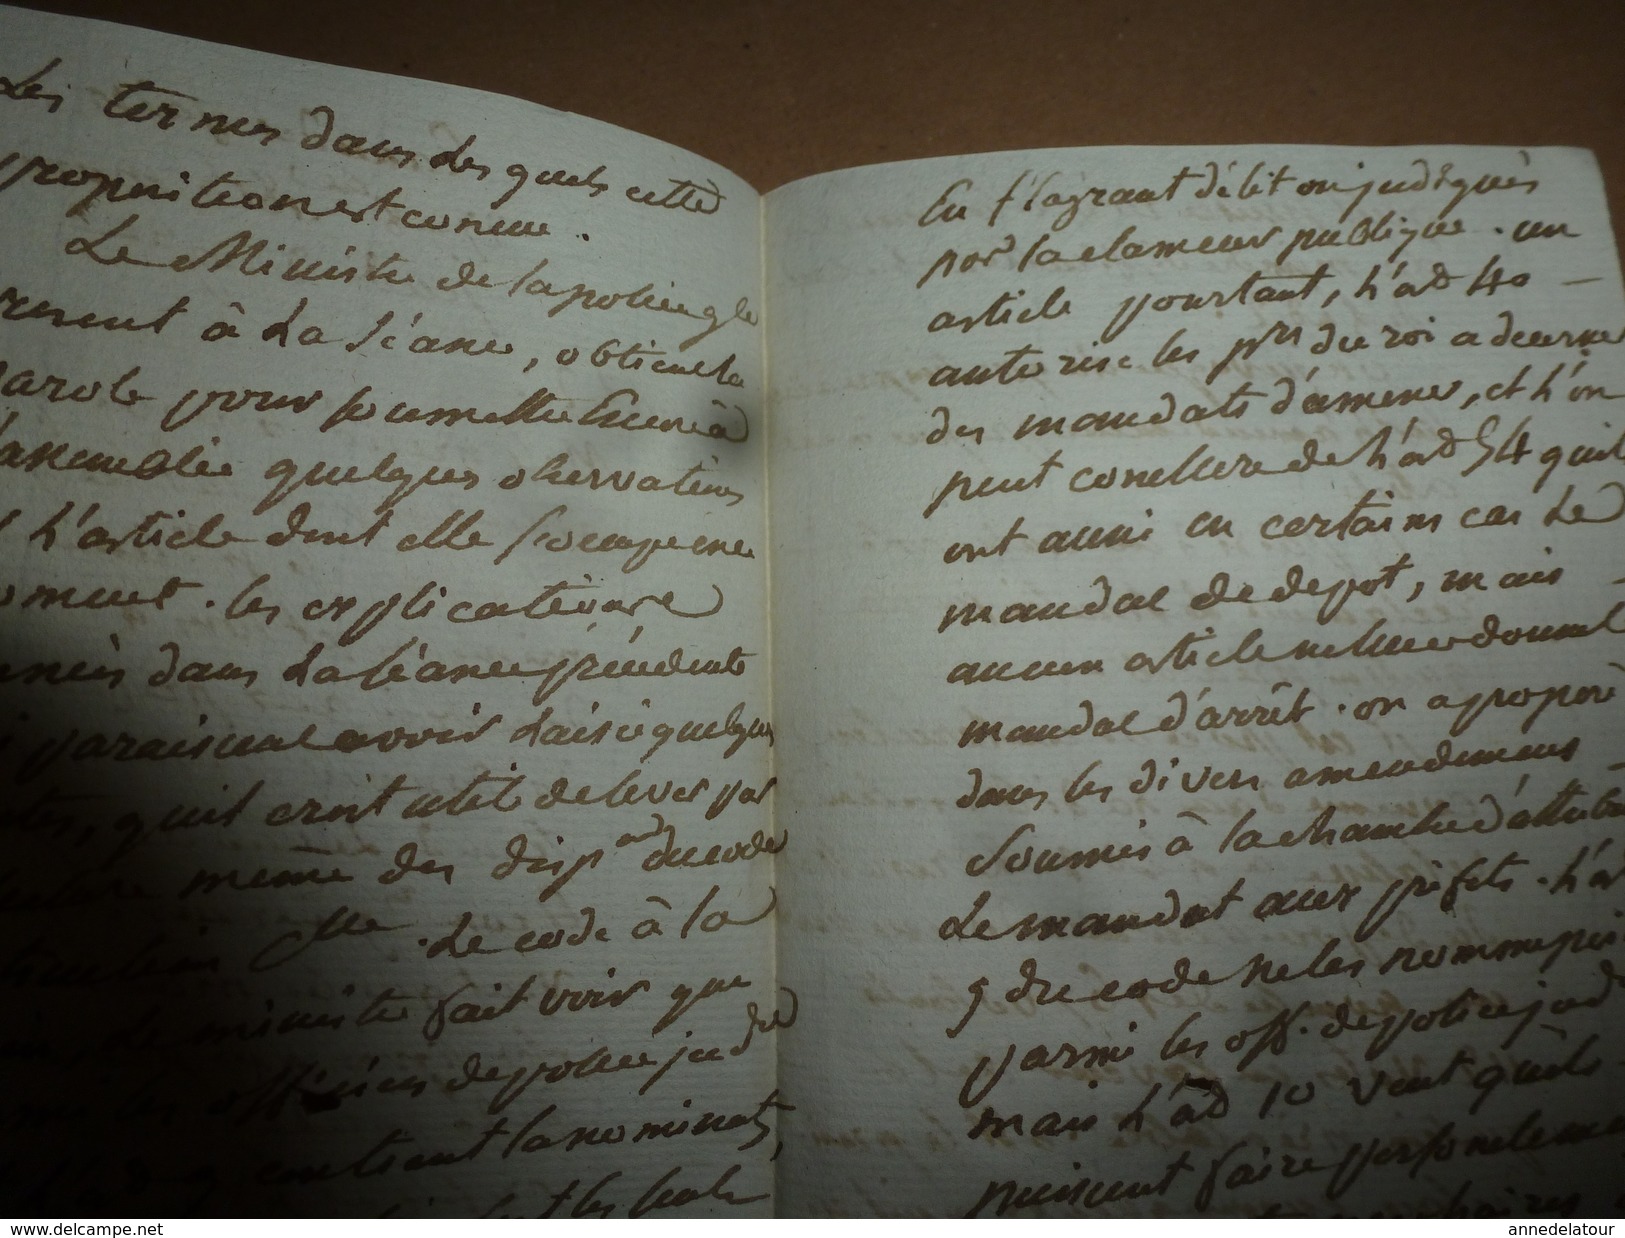 Les termes dans lesquels cette
proposition est conçue.
Le Ministre de la police gle
à la séance, obtient la
parole pour soumettre encore à
l'assemblée quelques observations
l'article dont elle s'occupe en ce
moment. les explications
dans la séance précédente
paraissent avoir laissé quelques
qu'il croit utile de lever par
même des dispons du code
d'instruction elle. Le code à la
le ministre fait voir que
les officiers de police judre
contient la nominatn,
les seuls
En flagrant délit ou judiqués
par la clameur publique. un
article pourtant, l'art 40
autorise les prs du roi a decerner
des mandats d'amener, et l'on
peut conclure de l'art 54 quils
ont aussi en certains cas le
mandat de depot, mais
aucun article ne leur donne le
mandat d'arrêt. on a proposé
dans les divers amendemens
soumis à la chambre d'attribuer
le mandat aux préfets. l'art
9 du code ne les nomme pas
parmi les off. de police judre
mais l'art 10 veut qu'ils
puissent faire personelement
delcampe.net
annedelatour